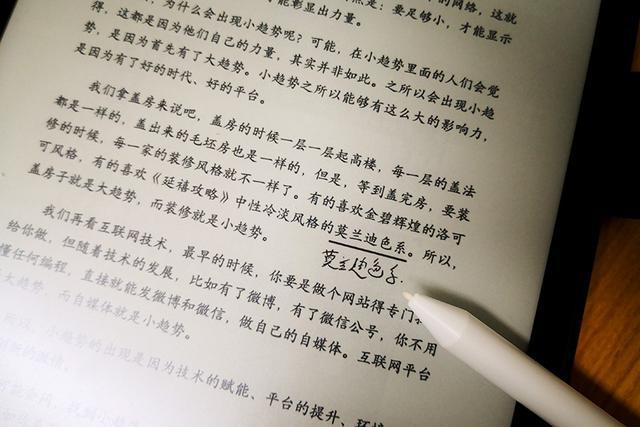 的网络，这就
点是：要足够小，才能显示
能彰显出力量。
为什么会出现小趋势呢？可能，在小趋势里面的人们会觉
得，这都是因为他们自己的力量，其实并非如此。之所以会出现小趋
势，是因为首先有了大趋势。小趋势之所以能够有这么大的影响力，
是因为有了好的时代、好的平台。
我们拿盖房来说吧，盖房的时候一层一层起高楼，每一层的盖法
都是一样的，盖出来的毛坯房也是一样的，但是，等到盖完房，要装
修的时候，每一家的装修风格就不一样了。有的喜欢金碧辉煌的洛可
可风格，有的喜欢《延禧攻略》中性冷淡风格的莫兰迪色系。所以，
盖房子就是大趋势，而装修就是小趋势。
莫兰迪色系.
我们再看互联网技术，最早的时候，你要是做个网站得专门
给你做，但随着技术的发展，比如有了微博，有了微信公号，你不用
懂任何编程，直接就能发微博和微信，做自己的自媒体。互联网平台
大趋势，而自媒体就是小趋势。
所以，小趋势的出现是因为技术的赋能、平台的提升、环境